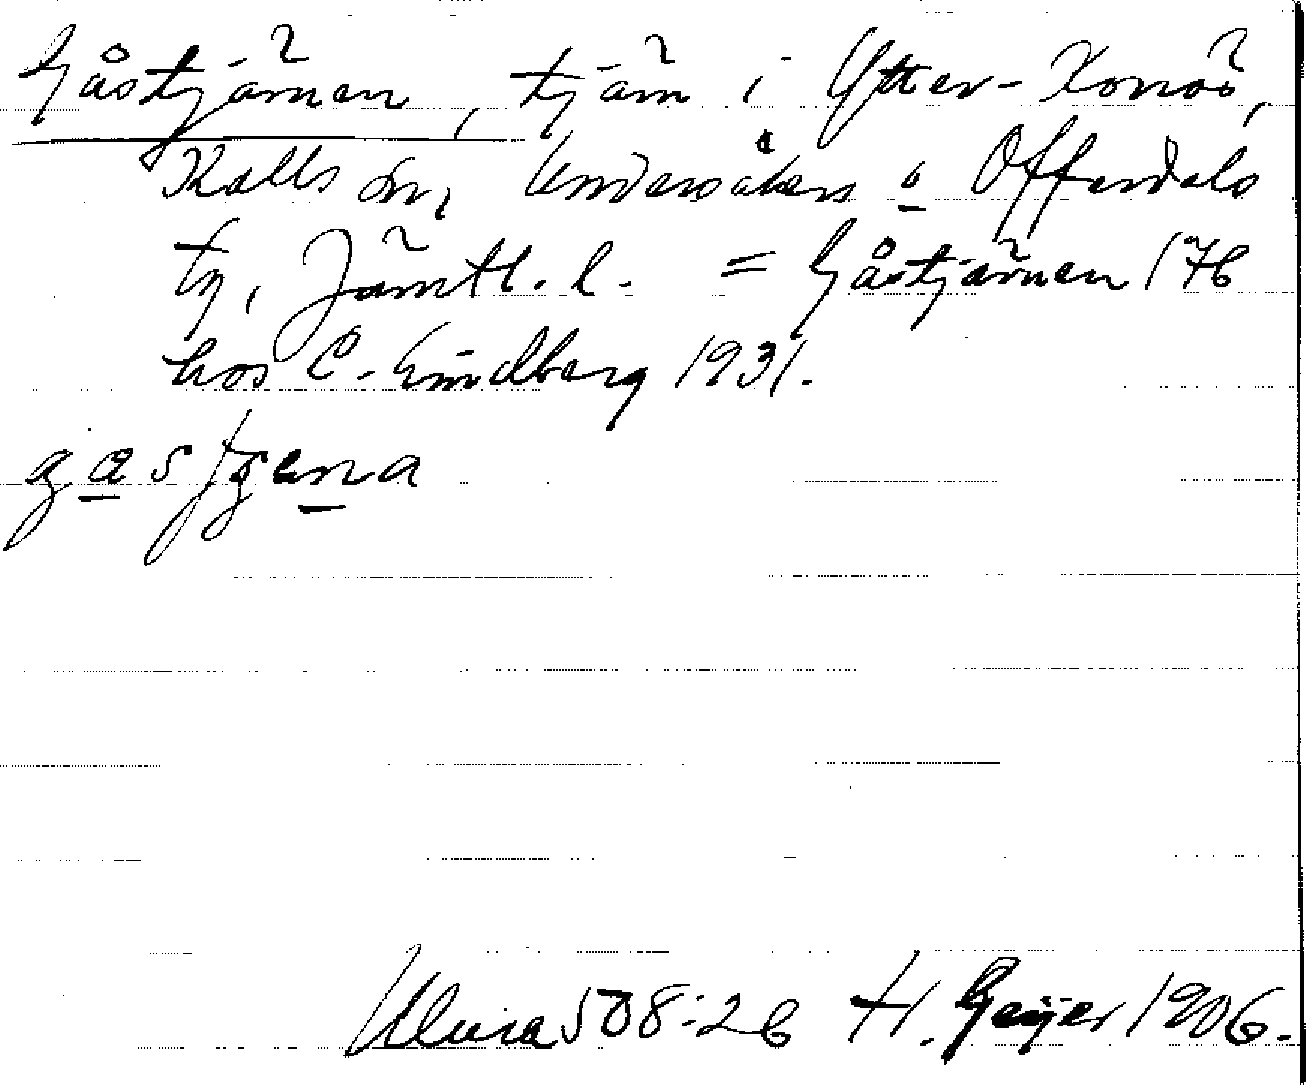 Gåstjärnen, tjärn i Ytter-Konäs,
Kalls sn, Undersåkers o Offerdals
tg, Jämtl. l. = Gåstjärnen 176
hos C. Lindberg 1931.
Ulma 508:26 H. Geijer 1906.